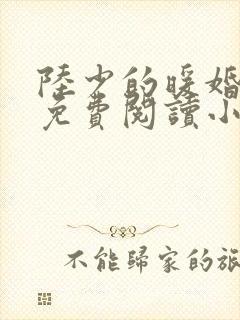 陸少的暖婚
免費閱讀小
不能歸家的旅